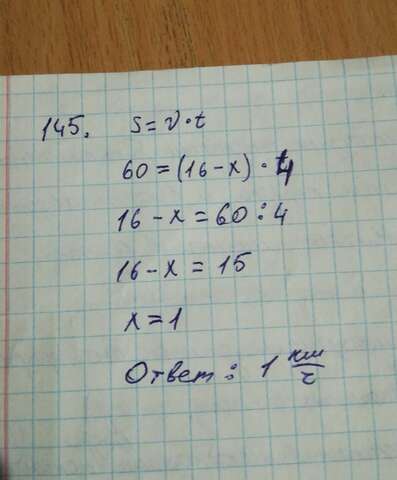 145. S = v · t
60 = (16 - x) · 4
16 - x = 60 : 4
16 - x = 15
x = 1
Ответ : 1 км/ч